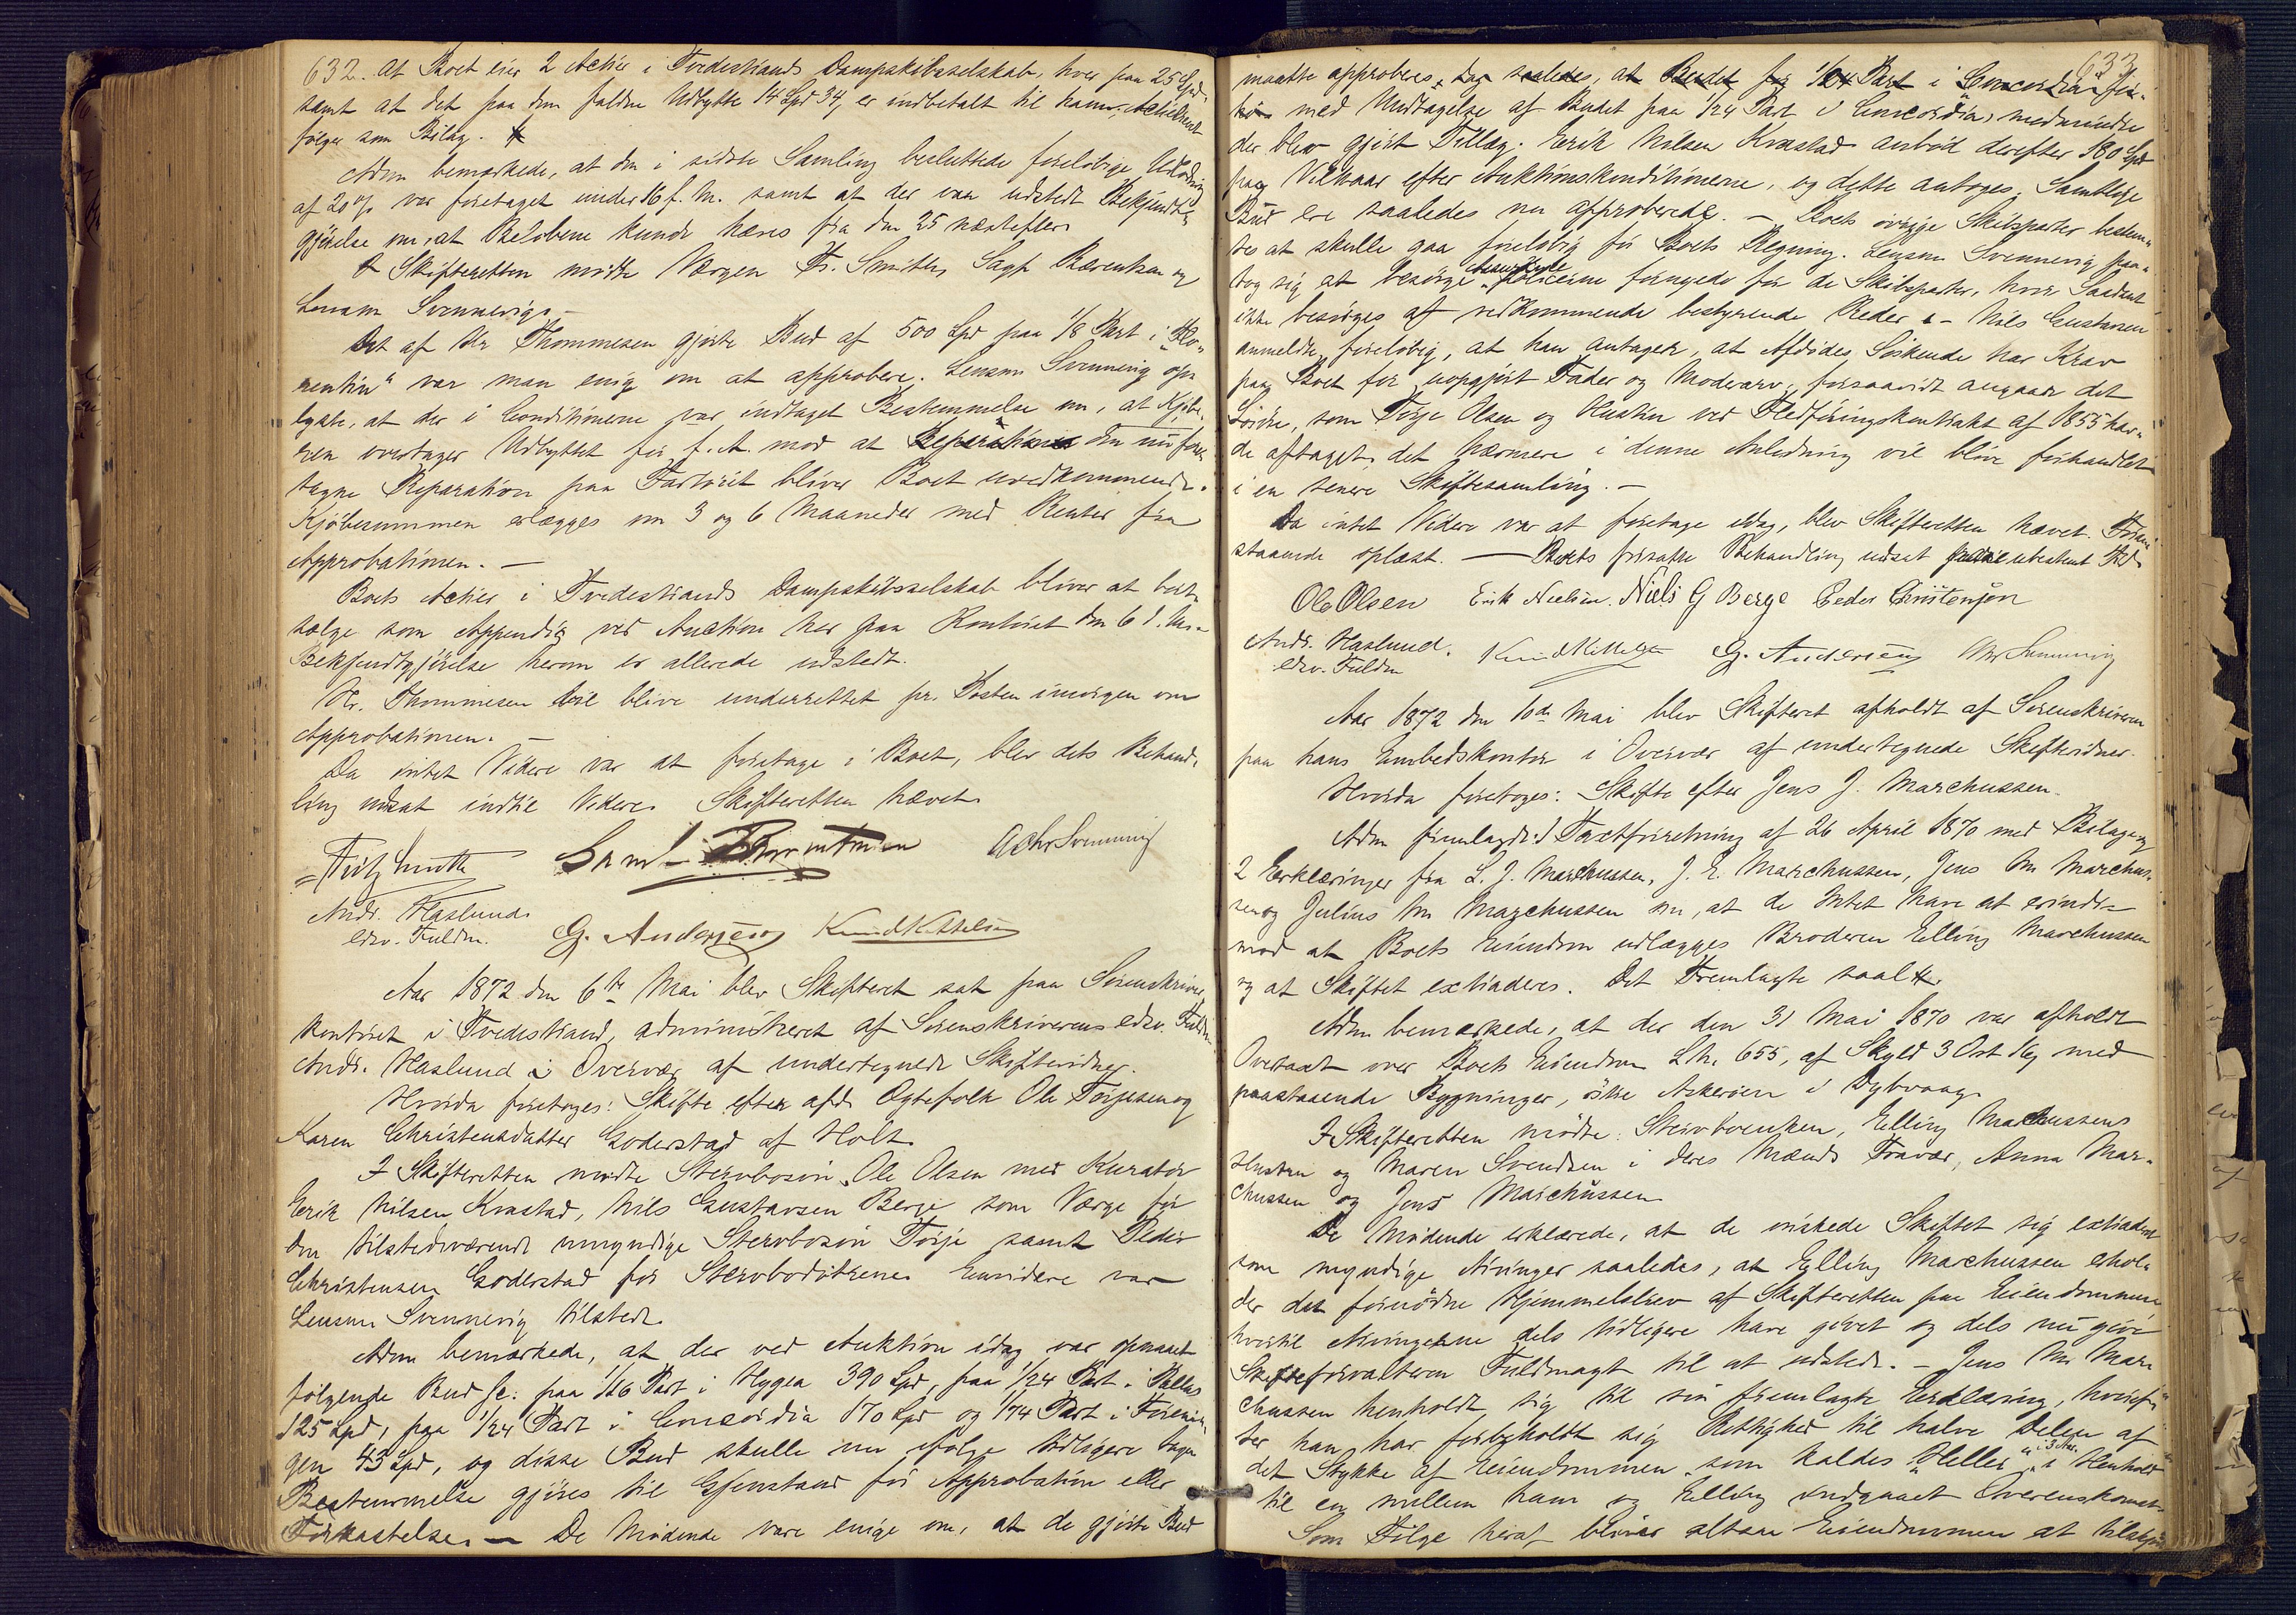 632. At Boet eier 2 Actier i Tvedestrands Dampskibsselskab, hver paa 25 Spd.
samt at det paa dem faldne Udbytte 14 Spd 34, er indbetalt til ham;
følger som Bilag.
Adm bemærkede, at den i sidste Samling besluttede foreløbige Udlodning
af 20 % var foretaget under 16 f. M. samt at der var udstedt Bekjendt-
gjørelse om, at Beløbene kunde hæves fra den 25 næstefter.
I Skifteretten mødte Værgen Fr. Smith, Sagf. Berentsen og
Lensm Svennevig. —
Det af Hr Thommesen gjorte Bud af 500 Spd paa 1/8 Part i "Flo-
rentin" var man enig om at approbere. Lensm Svennevig op-
lyste, at der i Conditionerne var indtaget Bestemmelse om, at Kjøbe-
ren overtager Udbyttet for f. A. mod at den nu fore-
tagne Reparation paa Fartøiet bliver Boet uvedkommende.
Kjøbesummen erlægges om 3 og 6 Maaneder med Renter fra
Approbationen. —
Boets Actier i Tvedestrands Dampskibsselskab bliver at bort-
sælge som Appendix ved Auktion her paa Kontoret den 6 d. M. -
Bekjendtgjørelse herom er allerede udstedt.
Hr. Thommesen vil blive underrettet pr. Posten imorgen om
Approbationen. —
Da intet Videre var at foretage i Boet, blev dets Behand-
ling udsat indtil Videre. Skifteretten hævet.
Fritz Smith Saml Berentsen A Chr Svennevig
Andr. Haslund
edsv. Fuldm. G. Anderssen Knud Kittelsen
Aar 1872 den 6te Mai blev Skifteret sat paa Sorenskriver
kontoret i Tvedestrand, administreret af Sorenskriverens edsv. Fuldm
Andr. Haslund i Overvær af undertegnede Skiftevidner.
Hvorda foretoges: Skifte efter afd. Ægtefolk Ole Torjesen og
Karen Christensdatter Goderstad af Holt.
I Skifteretten mødte Stervbosøn Ole Olsen med Kurator
Erik Nilsen Kvastad, Nils Gustavsen Berge som Værge for
den tilstedeværende umyndige Stervbosøn Torje samt Peder
Christensen Goderstad for Stervbodøtrene. Endvidere var
Lensm Svennevig tilstede.
Adm bemærkede, at der ved Auktion idag var opnaaet
følgende Bud sc: paa 1/16 Part i Hygea 390 Spd, paa 1/24 Part i Pallas
125 Spd, paa 1/24 Part i Concordia 170 Spd og 1/74 Part i Forenin-
gen 43 Spd, og disse Bud skulle nu ifølge tidligere tagen
Bestemmelse gjøres til Gjenstand for Approbation eller
Forkastelse. — De Mødende vare enige om, at de gjorte Bud
633
maatte approberes, dog saaledes, at Budet for 1/24 Part i Concordia
med Undtagelse af Budet paa 1/24 Part i Concordia, medmindre
der blev gjort Tillæg. Erik Nilsen Kvastad anbød derefter 180 Spd
paa Vilkaar efter Auktionskonditionerne, og dette antoges. Samtlige
Bud ere saaledes nu approberede. — Boets øvrige Skibsparter bestem-
te at skulle gaa foreløbig for Boets Regning. Lensm Svennevig paa-
tog sig at besørge Assurance policerne fornyede for de Skibsparter, hvor Saadant
ikke besørges af vedkommende bestyrende Reder. - Nils Gustavsen
anmeldte foreløbig, at han antager, at Afdødes Søskende har Krav
paa Boet for uopgjort Fader og Moderarv, forsaavidt angaar det
Løsøre, som Torje Olsen og Hustru ved Fledføringskontrakt af 1855 hav-
de aftaget; det Nærmere i denne Anledning vil blive forhandlet
i en senere Skiftesamling. —
Da intet Videre var at foretage idag, blev Skifteretten hævet. Foran-
staaende oplæst. — Boets fortsatte Behandling udsat paa ubestemt Tid.
Ole Olsen Erik Nielsen. Niels G Berge Peder Christensen
Andr. Haslund.
edsv. Fuldm Knud Kittelsen G. Anderssen A Chr Svennevig
Aar 1872 den 10de Mai blev Skifteret afholdt af Sorenskriveren
paa hans Embedskontor i Overvær af undertegnede Skiftevidner.
Hvorda foretoges: Skifte efter Jens J. Marchussen.
Adm fremlagde: 1 Taxtforretning af 26 April 1870 med Bilag og
2 Erklæringer fra L. J. Marchussen, J. E. Marchussen, Jens M. Marchus-
sen og Julius M. Marchussen om, at de Intet have at erindre
mod at Boets Eiendom udlægges Broderen Elling Marchussen
og at Skiftet extraderes. Det Fremlagte saal.
Adm bemærkede, at der den 31 Mai 1870 var afholdt
Overtaxt over Boets Eiendom L. N. 655, af Skyld 3 Ort 16 s med
paastaaende Bygninger, østre Askerøen i Dybvaag.
I Skifteretten mødte: Stervboenken, Elling Marchussens
Hustru og Maren Svendsen i deres Mænds Fravær, Anna Mar-
chussen og Jens Marchussen
De Mødende erklærede, at de ønskede Skiftet sig extraderet
som myndige Arvinger saaledes, at Elling Marchussen erhol-
der det fornødne Hjemmelsbrev af Skifteretten paa Eiendommen
hvortil Arvingerne dels tidligere have givet og dels nu give
Skifteforvalteren Fuldmagt til at udstede. - Jens M. Mar-
chussen henholdt sig til sin fremlagte Erklæring, hvoref-
ter han har forbeholdt sig Rettighed til halve Delen af
det Stykke af Eiendommen som kaldes "Heller" i Henhold
til en mellem ham og Elling indgaaet Overenskomst.
Som Følge heraf bliver altsaa Eiendommen at tilskjø